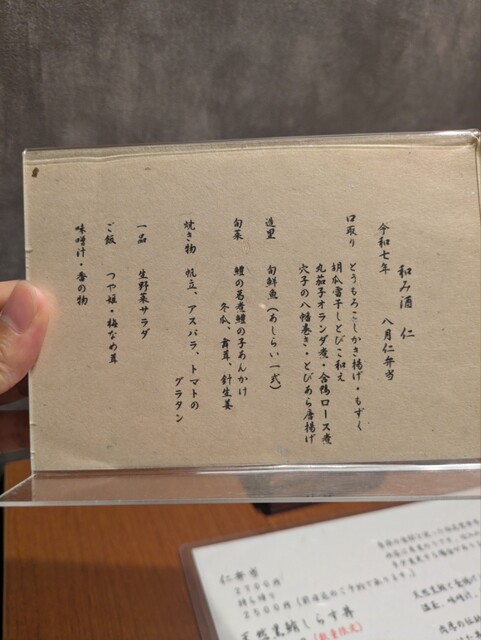 和み酒 仁
令和七年 八月仁弁当
口取り とうもろこしかき揚げ・もずく
胡瓜雷干しとびこ和え
丸茄子オランダ煮・合鴨ロース煮
穴子の八幡巻き・とびあら唐揚げ
造里 旬鮮魚(あしらい一式)
旬菜 鱧の葛煮鱧の子あんかけ
冬瓜、舞茸、針生姜
焼き物 帆立、アスパラ、トマトの
グラタン
一品 生野菜サラダ
ご飯 つや姫・梅なめ茸
味噌汁・香の物
仁弁当
2700円
持ち帰り
2500円(前日迄のご予約で承ります。)
天然黒鮪しらす丼
(数量限定)